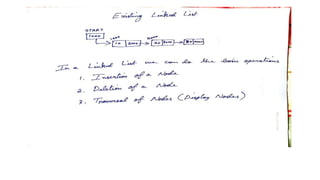 Existing Linked List
START
1000
1000
10
2000
20
In a Linked List we can do the basic operations
1. Insertion of a Node
2. Deletion of a Node
3. Traversal of Nodes (Display Nodes)